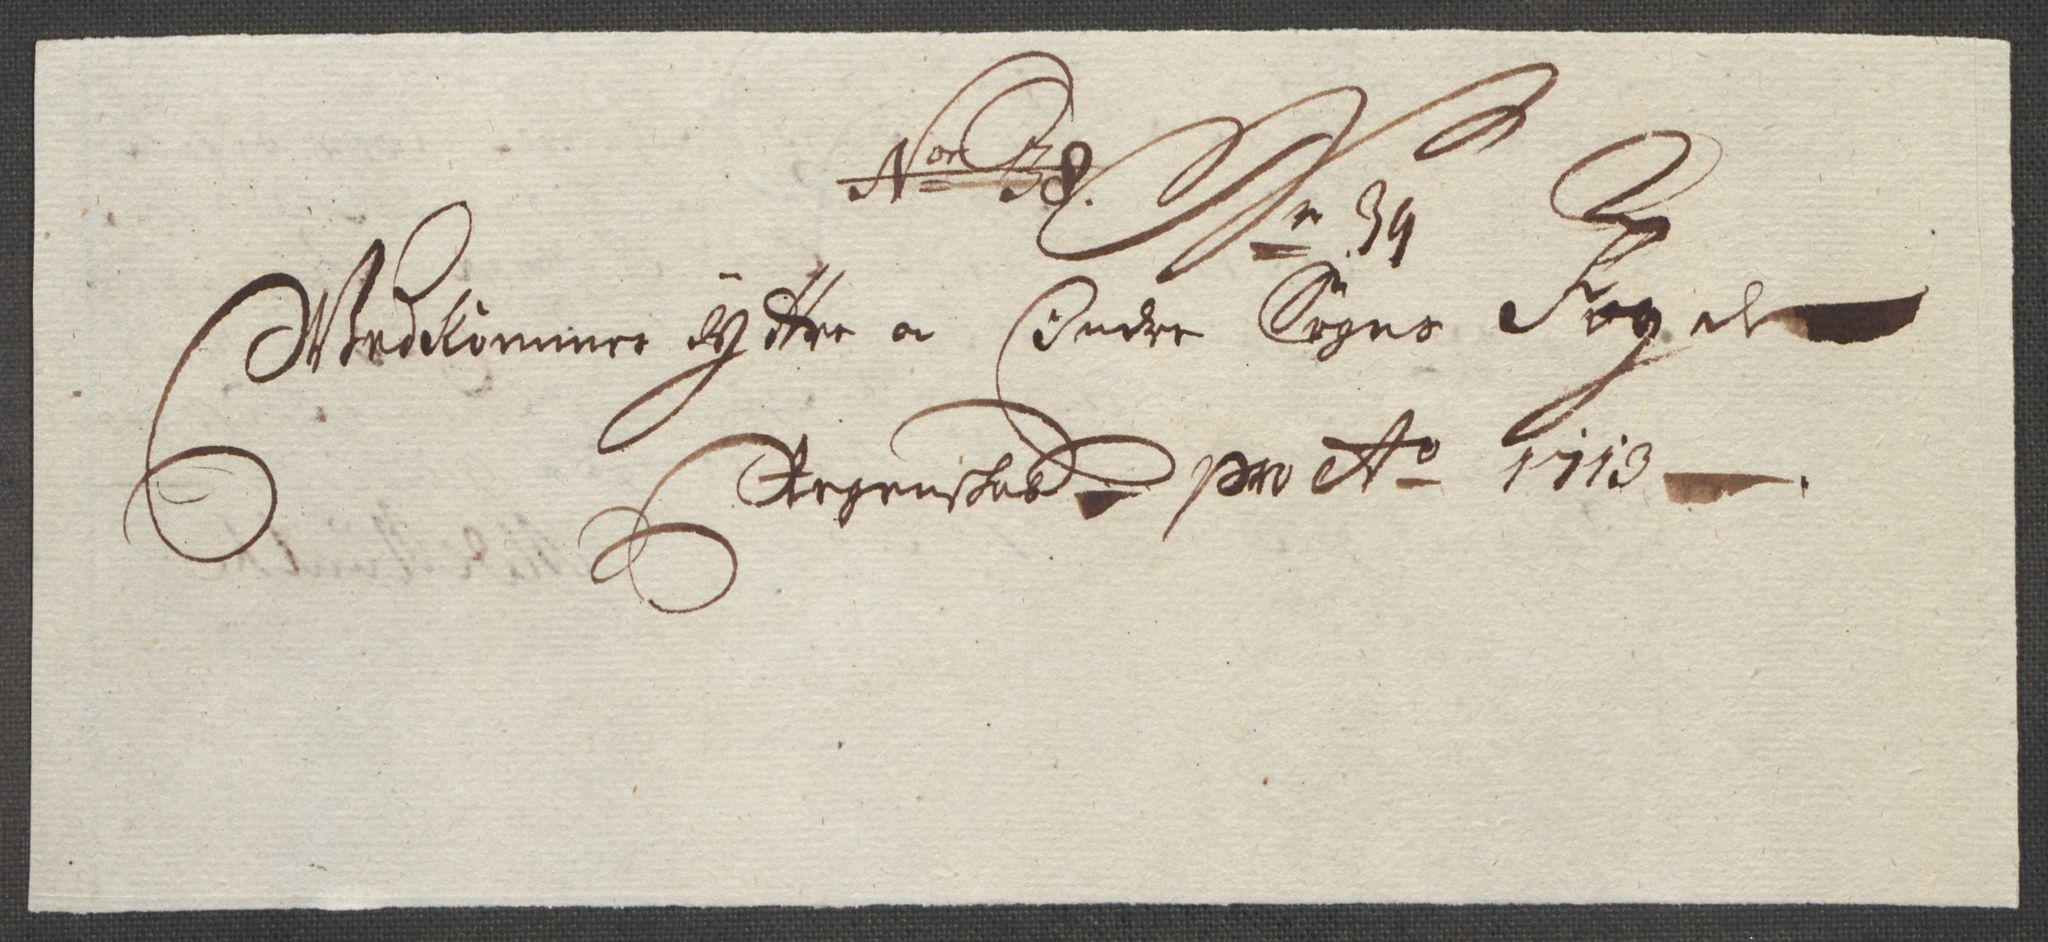 Nor 38. N 39
Vedkommer Yttre a Indre Sogns Fogd
Regenskab pro Ao 1713